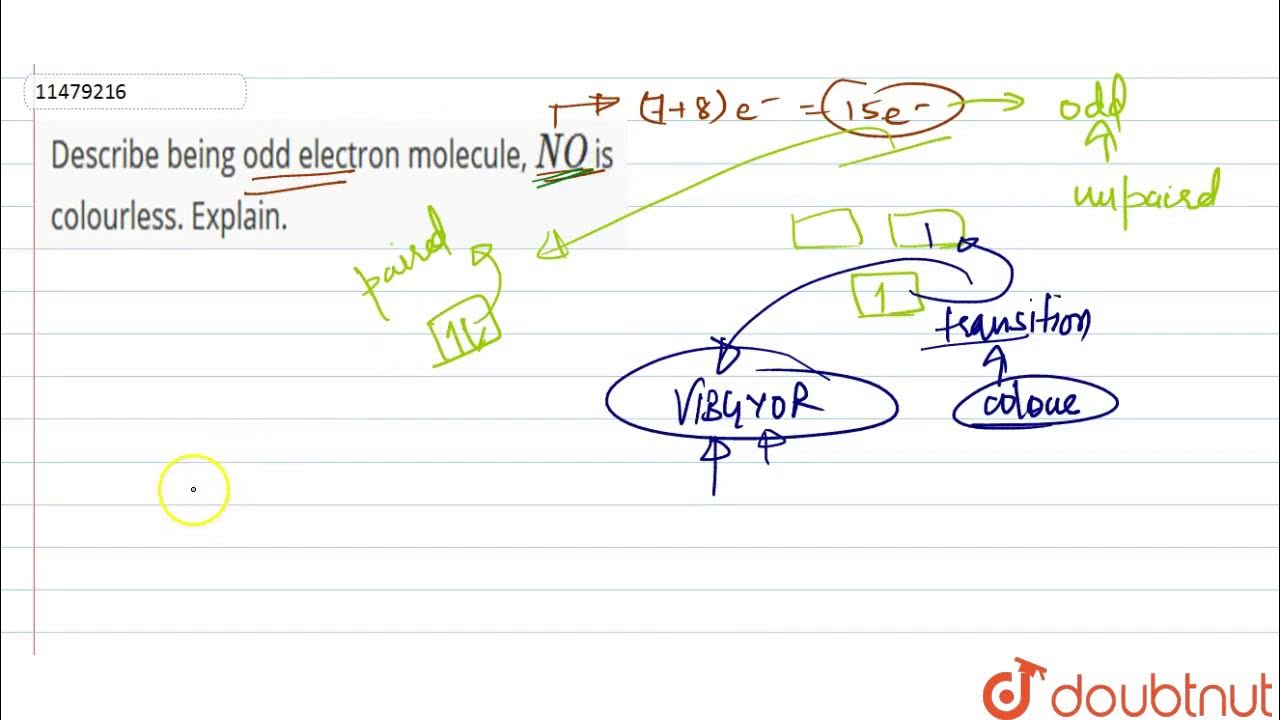 11479216
Describe being odd electron molecule, NO is
colourless. Explain.
(7+8)e⁻ = 15e⁻
odd
unpaired
paired
1
1
1
transition
VIBGYOR
colour
doubtnut